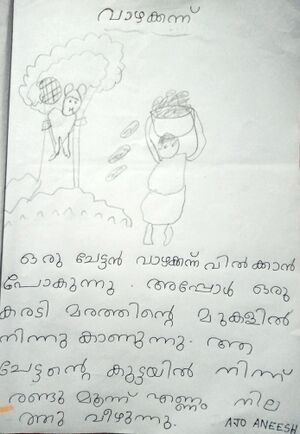 വാഴക്കന്ന്
ഒരു ചേട്ടൻ വാഴക്കന്ന് വിൽക്കാൻ
പോകുന്നു. അപ്പോൾ ഒരു
കരടി മരത്തിന്റെ മുകളിൽ
നിന്നു കാണുന്നു. ആ
ചേട്ടന്റെ കുട്ടയിൽ നിന്ന്
രണ്ടു മൂന്ന് എണ്ണം നില
ത്തു വീഴുന്നു.
AJO ANEESH